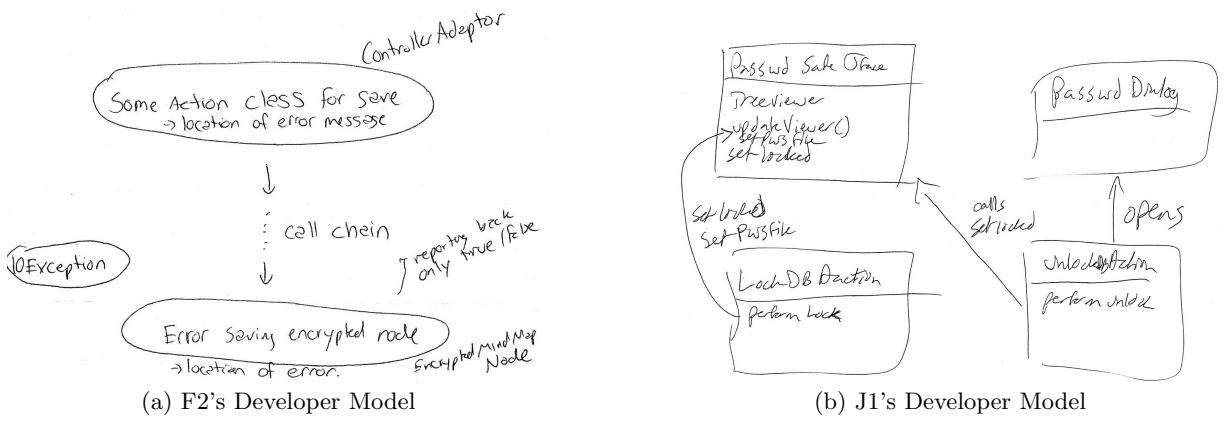 Controller Adaptor
Some Action class for save
→ location of error message
call chain
IOException
reporting back
only true/false
Error saving encrypted node
→ location of error.
EncryptedMindMap
Node
(a) F2's Developer Model
Passwd Safe JFace
Treeviewer
updateViewer()
setPwsFile
set locked
Passwd Dialog
set locked
set PwsFile
calls
set locked
opens
LockDB Action
perform Lock
unlockDBAction
perform unlock
(b) J1's Developer Model